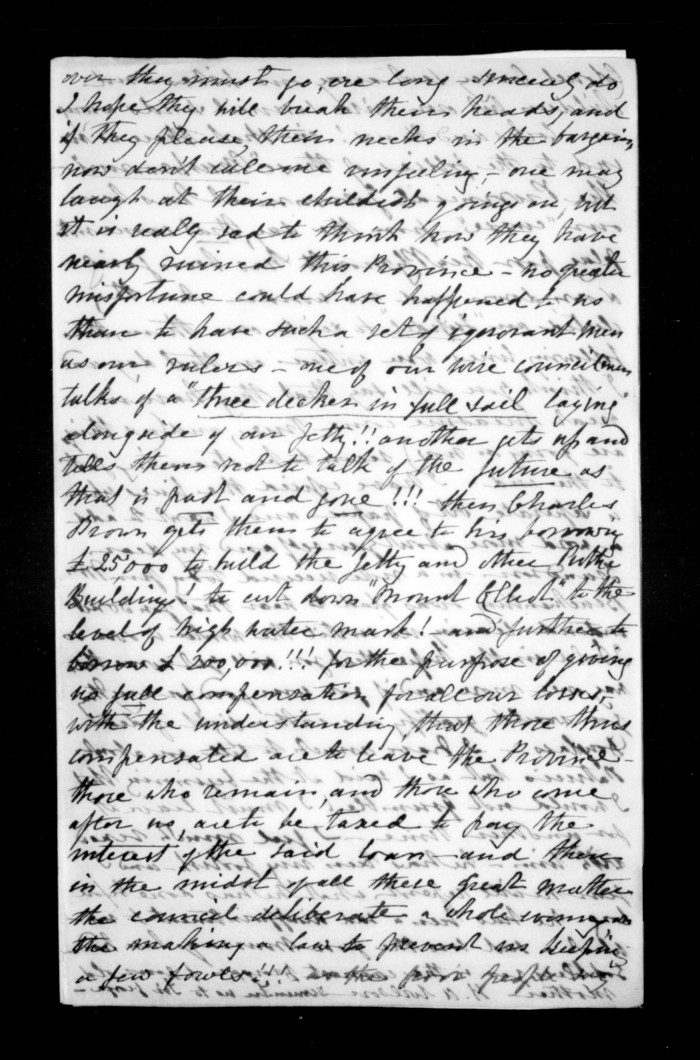 over they must go, ere long - sincerely do
I hope they will break their heads, and
if they please, their necks in the bargain,
now don't call me unfeeling, - one may
laugh at their childish goings on but
it is really sad to think how they have
nearly ruined this Province - no greater
misfortune could have happened to us
than to have such a set of ignorant men
as our rulers - one of our wise councilmen
talks of a "three decker in full sail laying
alongside of our Jetty!! another gets up and
tells them not to talk of the future as
that is past and gone!!! - then Charles
Brown gets them to agree to his borrowing
£25,000 to build the Jetty and other Public
Buildings! to cut down "Mount Eliot" to the
level of high water mark! and further to
borrow £200,000!!! for the purpose of giving
us full compensation for all our losses,-
with the understanding, that those thus
compensated are to leave the Province -
those who remain, and those who come
after us, are to be taxed to pay the
interest of the said loan - and then
in the midst of all these great matters
the council deliberate a whole evening on
the making a law to prevent us keeping
a few fowls!!! - the poor people
Mother H. R. remember us to